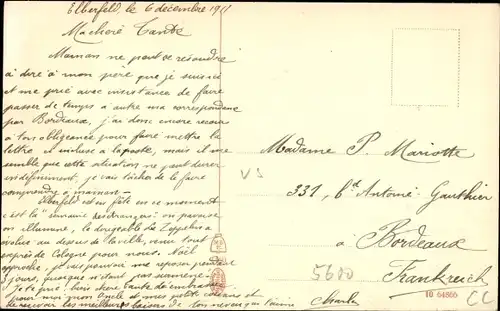 Elberfeld le 6 décembre 1911
Ma chère Tante
Maman ne peut se résoudre
à dire à mon père que je suis ici
et me prie avec insistance de faire
passer de temps à autre ma correspondance
par Bordeaux, j'ai donc encore recours
à ton obligeance pour faire mettre la
lettre ci incluse à la poste, mais il me
semble que cette situation ne peut durer
indéfiniment, je vais tâcher de le faire
comprendre à maman -
Elberfeld est en fête en ce moment
c'est la " on pavoise
on illumine, le dirigeable le Zeppelin a
évolué au dessus de la ville, venu tout
exprès de Cologne pour nous. Noël
approche, je vais pouvoir me reposer pendant
jours,
Je te prie, bien chère tante d'embrasser
pour moi mon Oncle et mes petits cousins et
recevoir les meilleurs baisers de ton neveu qui t'aime
Charles
Madame P. Mariotte
331, Bd Antoine Gauthier
à Bordeaux
Frankreich
VS
5600
10 64866
CC